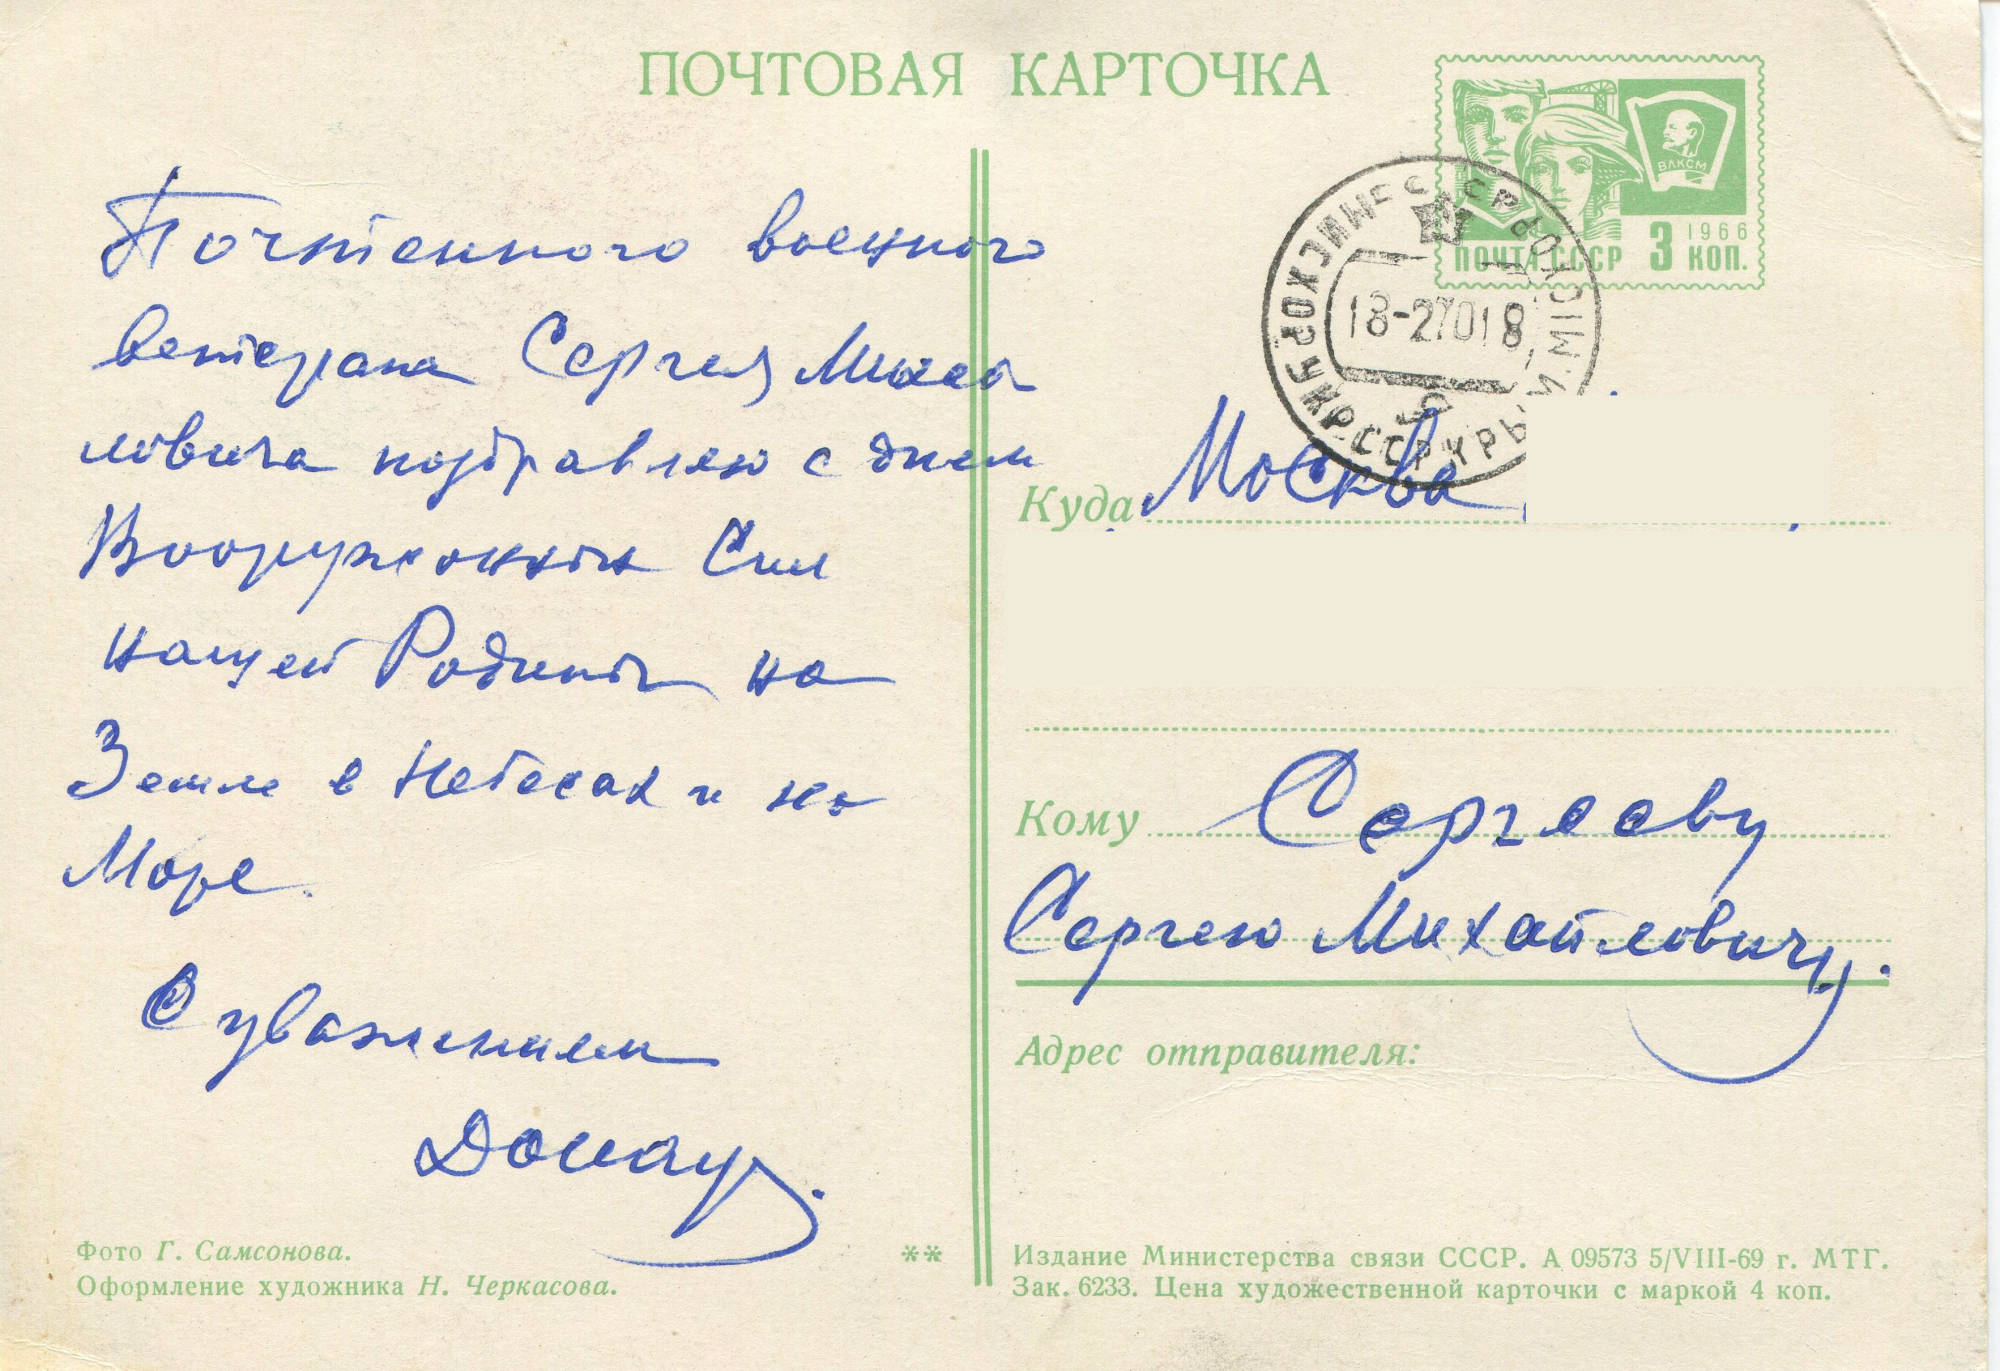 ПОЧТОВАЯ КАРТОЧКА
ВЛКСМ
1966
ПОЧТА СССР 3 КОП.
18-27018
Почтенного военного
ветерана Сергея Михай
ловича поздравляю с днем
Вооруженных Сил
нашей Родины на
Земле в Небесах и на
Море.
С уважением
Куда Москва,
Кому Сергееву
Сергею Михайловичу.
Адрес отправителя:
Фото Г. Самсонова.
Оформление художника Н. Черкасова.
**
Издание Министерства связи СССР. А 09573 5/VIII-69 г. МТГ.
Зак. 6233. Цена художественной карточки с маркой 4 коп.